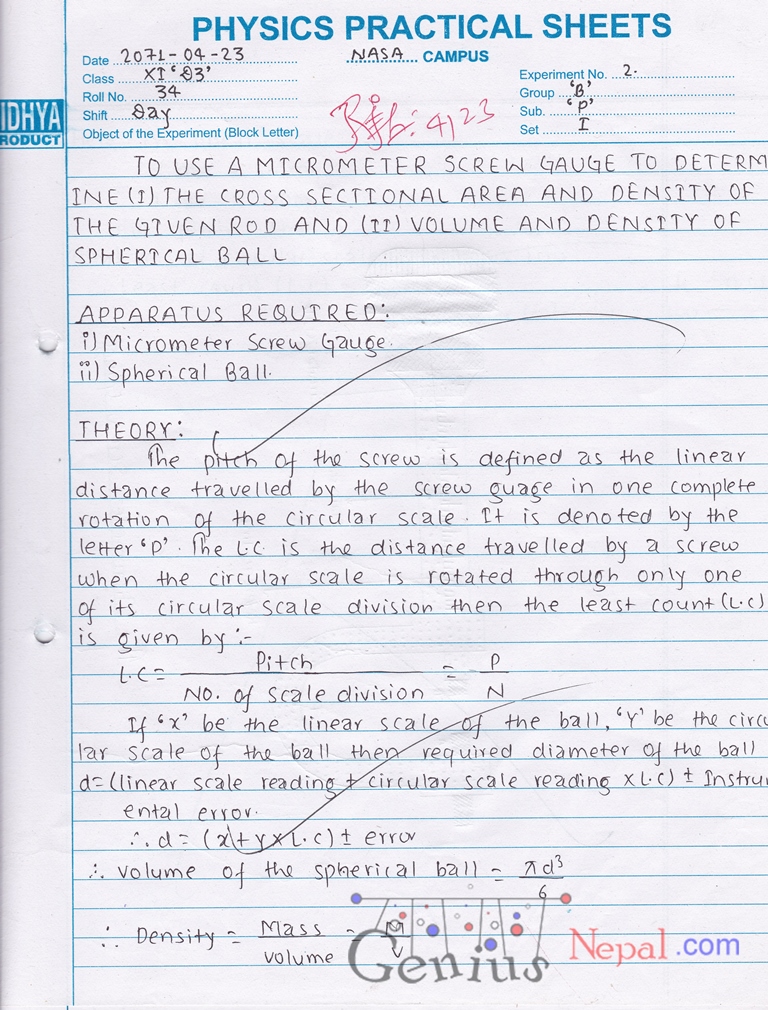 PHYSICS PRACTICAL SHEETS
Date 2071-04-23
NASA CAMPUS
Class XI 'D3'
Experiment No. 2.
Roll No. 34
Group 'B'
Shift Day
Sub. 'P'
Object of the Experiment (Block Letter)
Set I
IDHYA
PRODUCT
4/23
TO USE A MICROMETER SCREW GAUGE TO DETERM
INE (I) THE CROSS SECTIONAL AREA AND DENSITY OF
THE GIVEN ROD AND (II) VOLUME AND DENSITY OF
SPHERICAL BALL
APPARATUS REQUIRED:
i) Micrometer Screw Gauge.
ii) Spherical Ball.
THEORY:
The pitch of the screw is defined as the linear
distance travelled by the screw guage in one complete
rotation of the circular scale. It is denoted by the
letter 'P'. The L.C. is the distance travelled by a screw
when the circular scale is rotated through only one
of its circular scale division then the least count (L.C)
is given by :-
L.C = Pitch / NO. of scale division = P / N
If 'x' be the linear scale of the ball, 'Y' be the circu
lar scale of the ball then required diameter of the ball
d= (linear scale reading + circular scale reading x L.C) ± Instrum
ental error.
∴ d = (x + Y x L.C) ± error
∴ volume of the spherical ball = πd³ / 6
∴ Density = Mass / volume = M / V
Genius Nepal.com